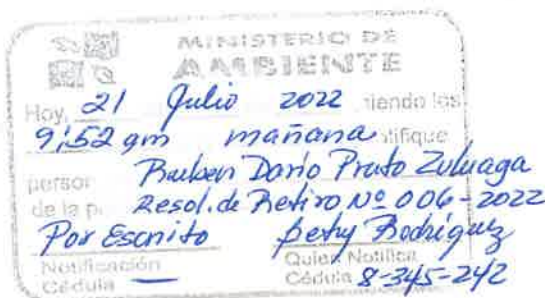 MINISTERIO DE
AMBIENTE
Hoy, 21 Julio 2022 siendo las
9:52 am mañana notifique
person Ruben Dario Prato Zuluaga
de la p. Resol. de Retiro Nº 006-2022
Por Escrito Betsy Rodriguez
Notificación Quien Notifica
Cédula — Cédula 8-345-242